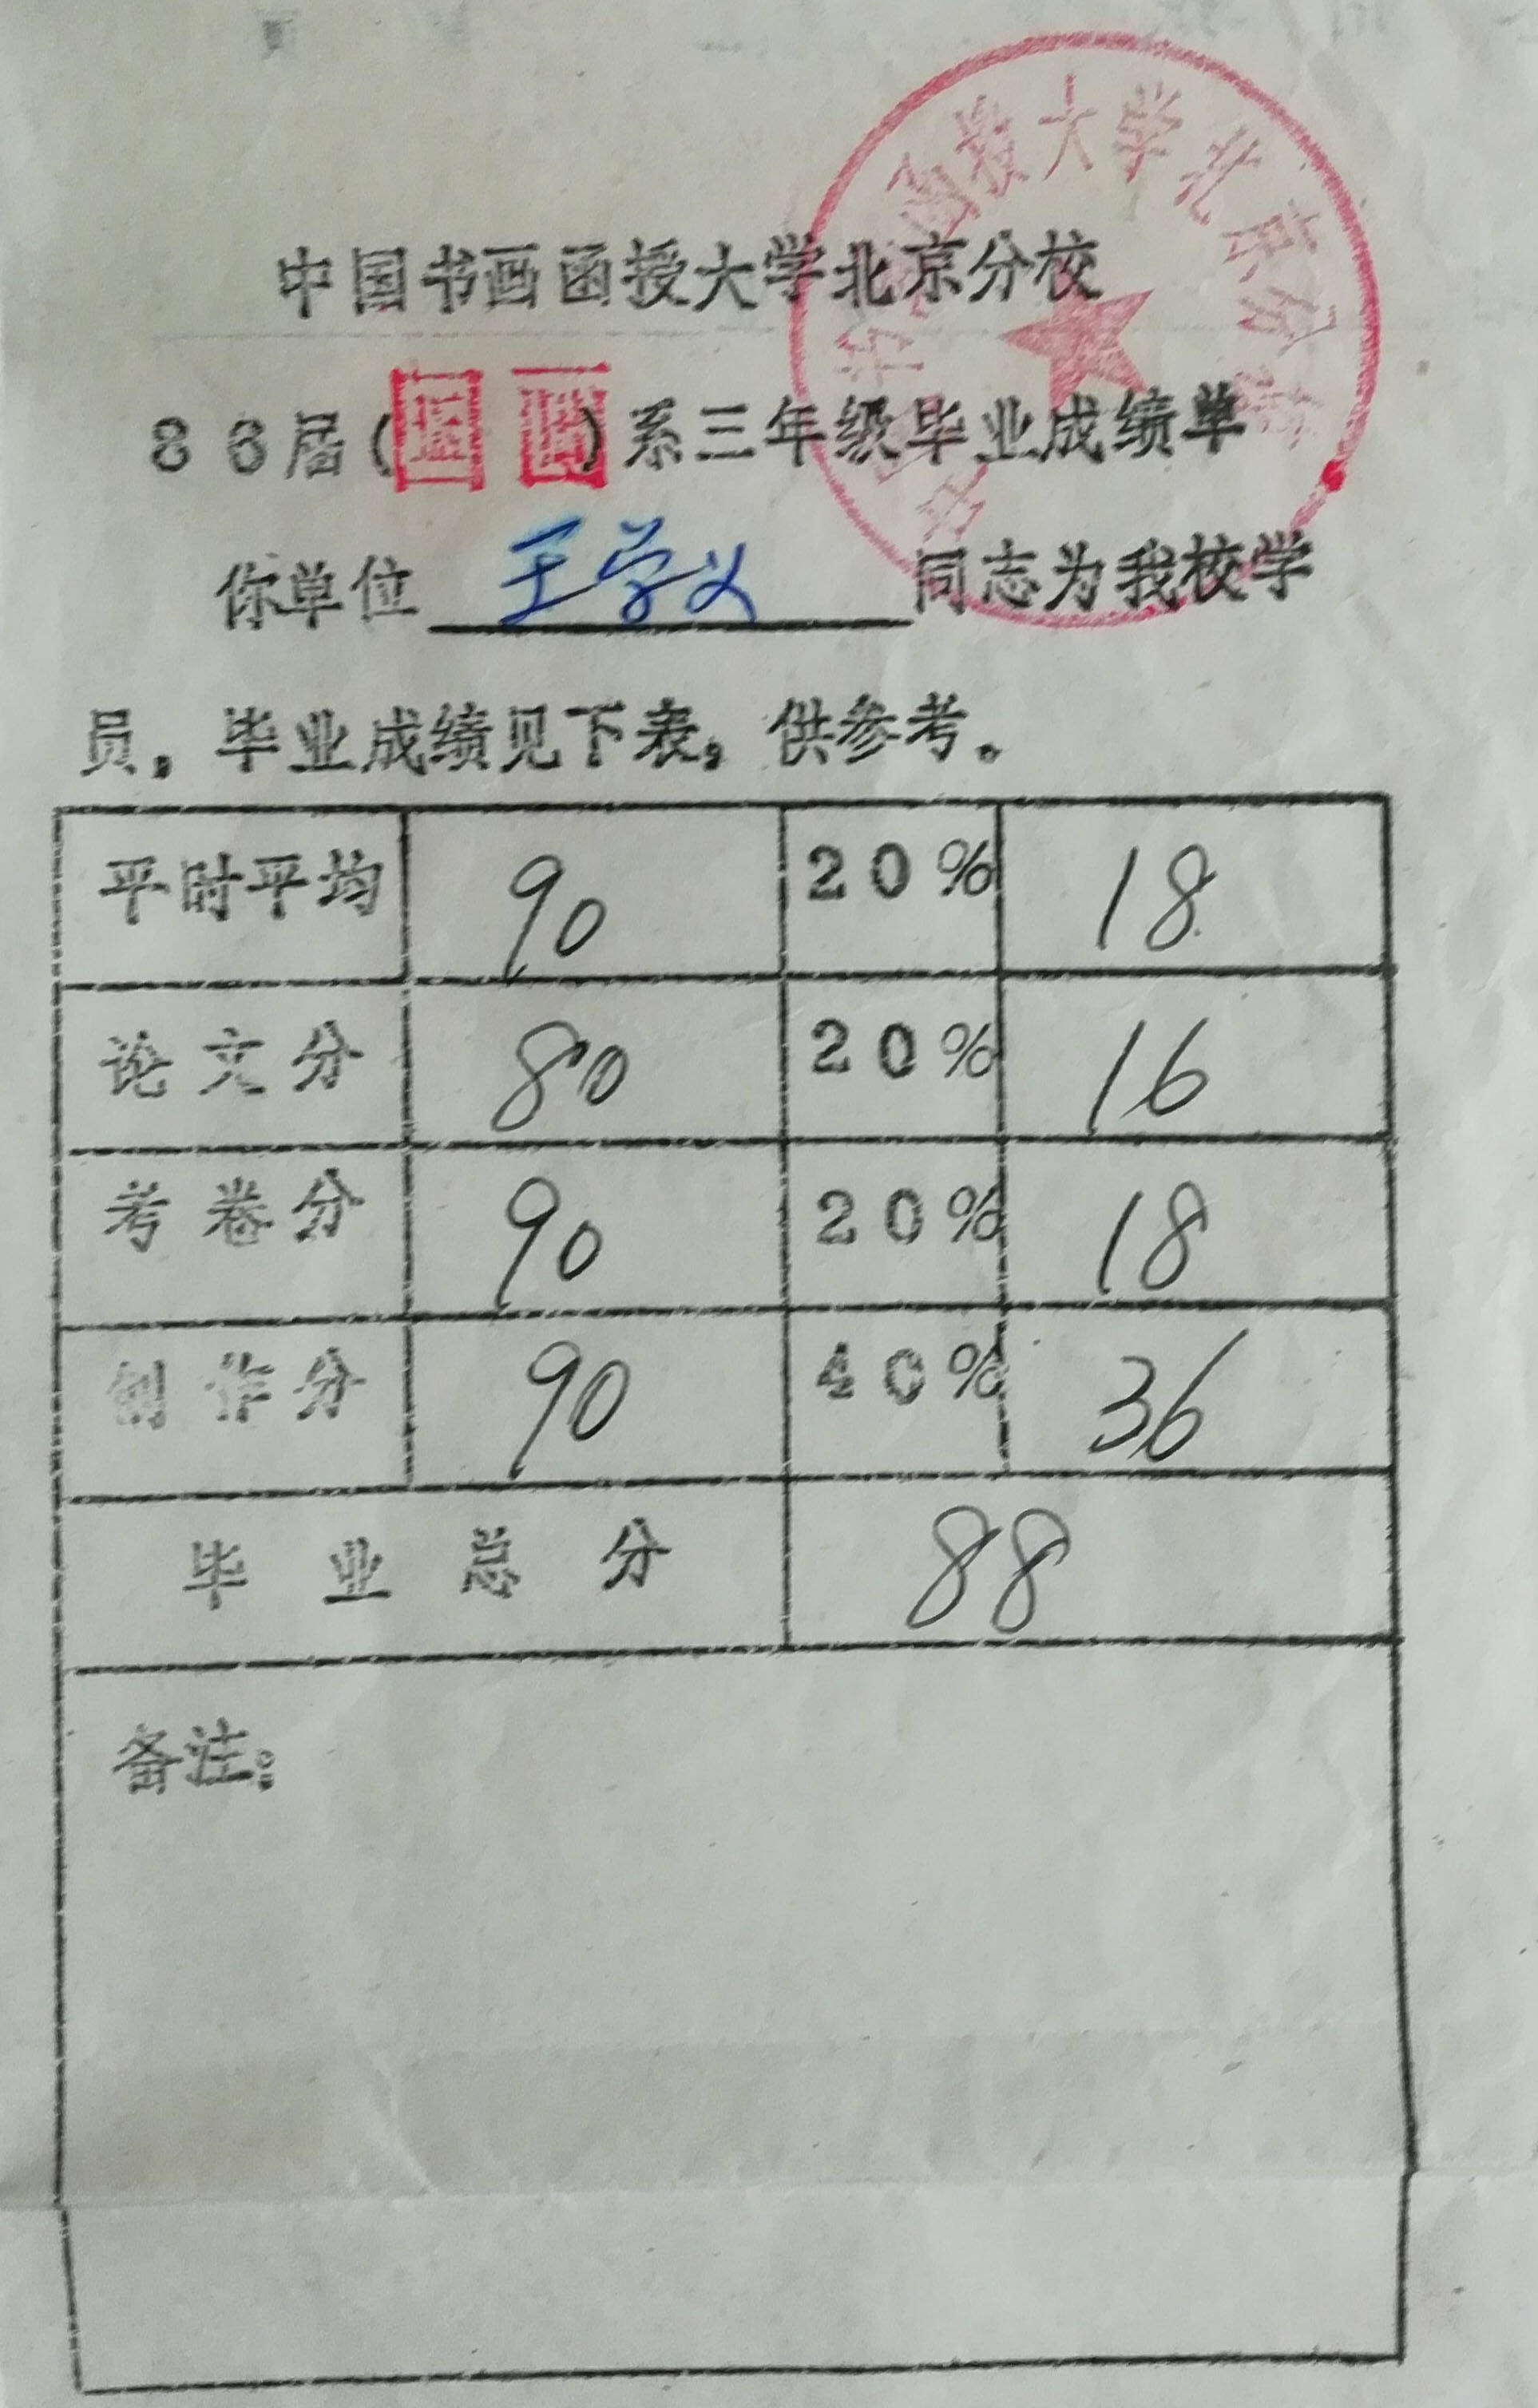 中国书画函授大学北京分校
88届(国画)系三年级毕业成绩单
你单位 王学义 同志为我校学
员,毕业成绩见下表,供参考。
平时平均 90 20% 18
论文分 80 20% 16
考卷分 90 20% 18
创作分 90 40% 36
毕业总分 88
备注:
中国书画函授大学北京分校